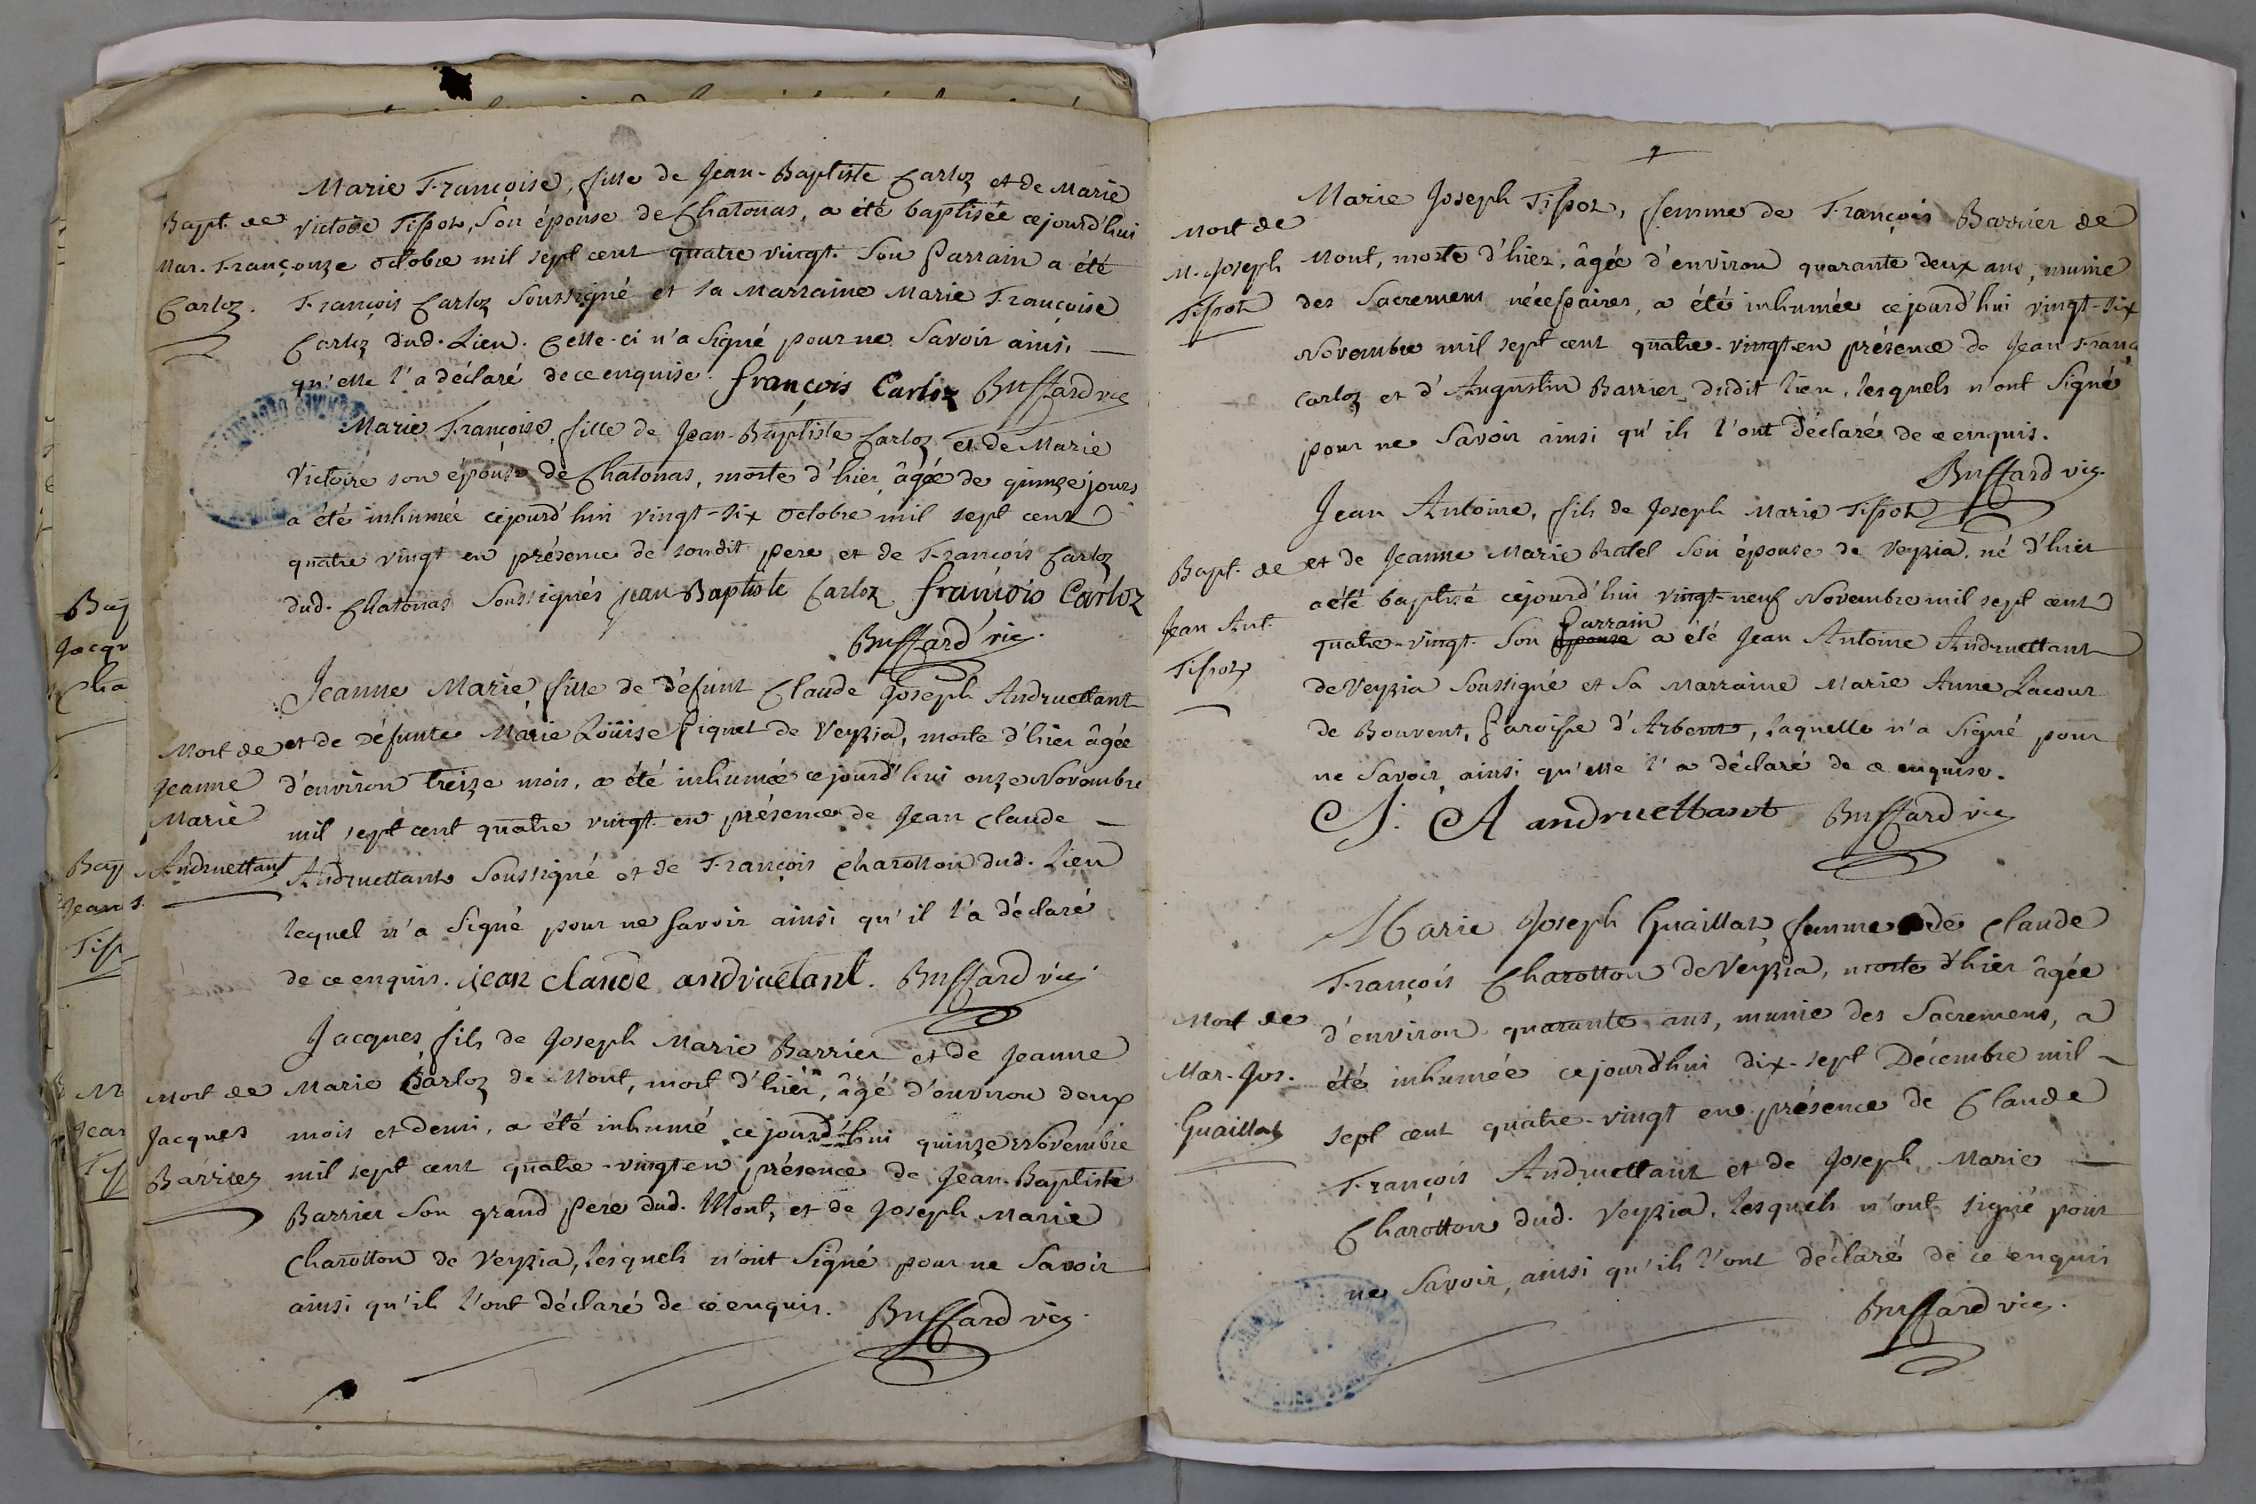 Marie Françoise, fille de Jean-Baptiste Carloz et de Marie
Bapt. de
Mar. Franç.
Carloz.
Victoire Tissot, Son épouse de Chatonas, a été baptisée cejourd'hui
onze octobre mil sept cent quatre vingt. Son Parrain a été
François Carloz Soussigné et sa Marraine Marie Françoise
Carloz dud. Lieu. Celle-ci n'a Signé pour ne Savoir ainsi
qu'elle l'a déclaré de ce enquise. françois Carloz Buffard vic
Marie Françoise, fille de Jean-Baptiste Carloz et de Marie
Victoire son épouse de Chatonas, morte d'hier, âgée de quinze jours
a été inhumée cejourd'hui vingt-six Octobre mil sept cent
quatre vingt en présence de sondit Pere et de François Carloz
dud. Chatonas Soussignés jean Baptiste Carloz françois Carloz
Buffard vic.
Jeanne Marie fille de défunt Claude Joseph Andruettant
Mort de
Jeanne
Marie
Andruettant
et de Défunte Marie Loüise Piquet de Veyzia, morte d'hier âgée
d'environ treize mois, a été inhumée cejourd'hui onze Novembre
mil sept cent quatre vingt en présence de Jean Claude
Andruettant Soussigné et de François Charotton dud. Lieu
lequel n'a Signé pour ne Savoir ainsi qu'il l'a déclaré
de ce enquis. jean claude andruetant. Buffard vic.
Jacques, fils de Joseph Marie Barrier et de Jeanne
Mort de
Jacques
Barrier
Marie Carloz de Mont, mort d'hier, âgé d'environ deux
mois et demi, a été inhumé cejourd'hui quinze Novembre
mil sept cent quatre-vingt en présence de Jean-Baptiste
Barrier Son grand Pere dud. Mont, et de Joseph Marie
Charotton de Veyzia, lesquels n'ont Signé pour ne Savoir
ainsi qu'ils l'ont déclaré de ce enquis. Buffard vic.
Marie Joseph Tissot, femme de François Barrier de
Mort de
M. Joseph
Tissot
Mont, morte d'hier, âgée d'environ quarante deux ans, munie
des Sacremens nécessaires, a été inhumée cejourd'hui vingt-six
Novembre mil sept cent quatre-vingt en présence de Jean Franç
Carloz et d'Augustin Barrier dudit lieu, lesquels n'ont Signé
pour ne Savoir ainsi qu'ils l'ont déclaré de ce enquis.
Buffard vic.
Jean Antoine, fils de Joseph Marie Tissot
Bapt. de
Jean Ant.
Tissot
et de Jeanne Marie Son épouse de Veyzia, né d'hier
a été baptisé cejourd'hui vingt-neuf Novembre mil sept cent
Parrain
quatre-vingt. Son épouse a été Jean Antoine Andruettant
de Veyzia Soussigné et Sa Marraine Marie Anne Lacour
de Bouvent, Paroisse d'Arbent, Laquelle n'a Signé pour
ne Savoir, ainsi qu'elle l'a déclaré de ce enquise.
J. A andruettant Buffard vic
Marie Joseph Guaillat femme de Claude
Mort de
Mar. Jos.
Guaillat
François Charotton de Veyzia, morte d'hier âgée
d'environ quarante ans, munie des Sacremens, a
été inhumée cejourd'hui dix-sept Décembre mil
sept cent quatre-vingt en présence de Claude
François Andruettant et de Joseph Marie
Charotton dud. Veyzia, lesquels n'ont signé pour
ne Savoir, ainsi qu'ils l'ont déclaré de ce enquis
Buffard vic.